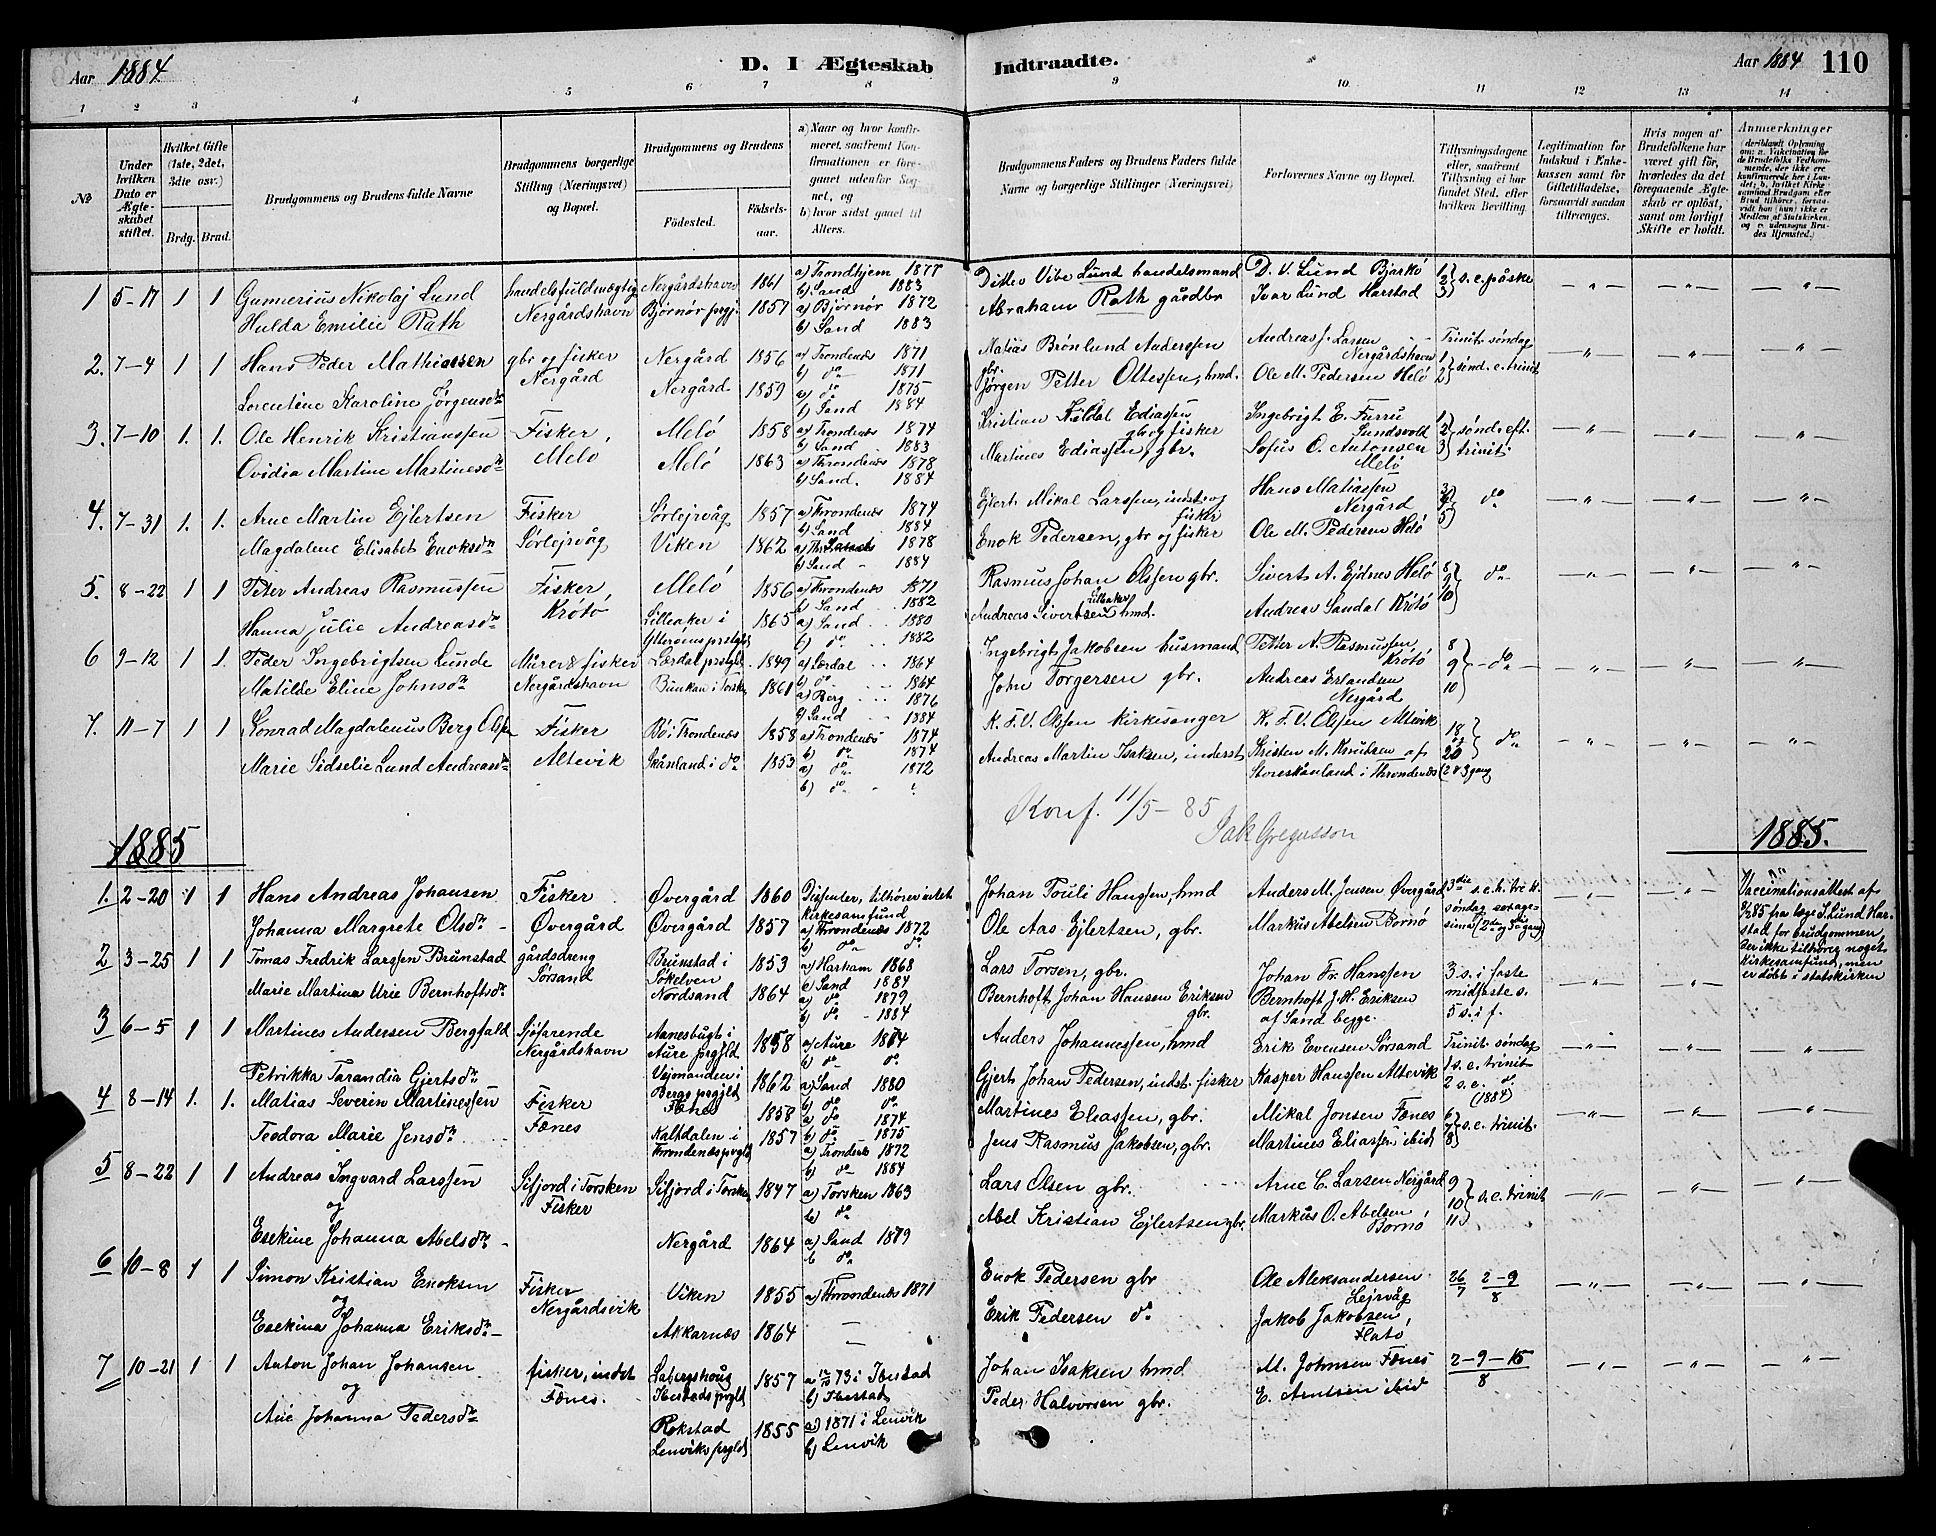 Aar 1884.
D. I Ægteskab Indtraadte.
Aar 1884 110
1 2 3 4 5 6 7 8 9 10 11 12 13 14
№
Under hvilken Dato er Ægteskabet stiftet.
Hvilket Gifte (1ste, 2det, 3die osv.)
Brdg. Brud.
Brudgommens og Brudens fulde Navne
Brudgommens borgerlige Stilling (Næringsvei) og Bopæl.
Brudgommens og Brudens
Födested.
Födsels-aar.
a) Naar og hvor konfirmeret, saafremt Konfirmationen er foregaaet udenfor Sognet, og
b) hvor sidst gaaet til Alters.
Brudgommens Faders og Brudens Faders fulde Navne og borgerlige Stillinger (Næringsvei)
Forlovernes Navne og Bopæl.
Tillysningsdagene eller, saafremt Tillysning ei har fundet Sted, efter hvilken Bevilling
Legitimation for Indskud i Enkekassen samt for Giftetilladelse, forsaavidt saadan tiltrænges.
Hvis nogen af Brudefolkene har været gift för, hvorledes da det foregaaende Ægteskab er oplöst, samt om lovligt Skifte er holdt.
Anmerkninger
1 5-17 1 1 Gunnerius Nikolaj Lund handelsfuldmægtig Nergårdshavn 1861 a) Trondhjem 1877 b) Sand 1883 Ditlev Vibe Lund handelsmand D. V. Lund Bjarkö 1 2 3 } s. e. påske
Hulda Emilie Rath Nergårdshavn Bjørnør prgj. 1857 a) Bjørnør 1872 b) Sand 1883 Abraham Rath gårdbr Ivar Lund Harstad
2. 7-4 1 1 Hans Peder Mathiassen gbr og fisker Nergård Nergård 1856 a) Trondenæs 1871 b) do 1871 Matias Brønlund Anderssen gbr. Andreas J. Larsen Nergårdshavn Trinit. söndag
Lorentine Karoline Jörgensdtr Nergård 1859 a) do 1875 b) Sand 1884 Jørgen Petter Ottessen, hmd. Ole M. Pedersen Helö 1 2 } sönd. e. trinit
3. 7-10 1. 1. Ole Henrik Kristianssen Fisker, Melö Melö 1858 a) Trondenæs 1874 b) Sand 1883 Kristian Kildal Ediassen gbr og fisker Ingebrigt E. Furru Sundsvold 1 2 3 } sönd. eft. trinit.
Ovidia Martine Martinesdtr Melö 1863 a) Throndenæs 1878 b) Sand. 1884 Martines Ediassen, gbr. Sofus O. Antonsen Melö
4. 7-31 1. 1. Arne Martin Ejlertsen Fisker Sørlejrvåg Sørlejrvåg 1857 a) Throndenæs 1874 b) Sand 1884 Ejlert Mikal Larssen, inderst og fisker Hans Matiassen Nergård do
Magdalene Elisabet Enoksdtr Viken 1862 1878 b) Sand 1884 Enok Pedersen, gbr og fisker Ole M. Pedersen Helö
5. 8-22 1 1 Peter Andreas Rasmussen Fisker, Krötö Melö 1856 a) Throndenæs 1871 b) Sand 1882 Rasmus Johan Olssen gbr. Sivert A. Ejdnes Helö 8 9 10 } do
Hanna Julie Andreasdtr Lilleaker i Ytterøens prstgjld 1865 a) Sand 1880 b) do 1882 Andreas Sivertsen Lilleaker hmd. Andreas Sandal Krötö
6 9-12 1 1. Peder Ingebrigtsen Lunde Murer & fisker Nergårdshavn Lærdal prstgjld 1849 a) Lærdal 1864 b) do 1864 Ingebrigt Jakobsen husmand Petter A. Rasmussen Krötö 8 9 10 } do
Matilde Eline Johnsdtr Bunkan i Torsken 1861 a) Berg 1876 b) Sand 1884 John Torgersen gbr. Andreas Erlandsen Nergård
7. 11-7 1 1 Konrad Magdalenus Berg Olssen Fisker Altevik Bö i Trondenæs 1858 a) Trondenæs 1874 b) do 1874 K. F. V. Olssen kirkesanger K. F. V. Olssen Altevik 18 20 } do
Marie Sidselie Lund Andreasdtr Skånland i do 1853 a) do 1872 b) do Andreas Martin Isaksen, inderst Kristen M. Knudsen af Storeskånland i Throndenæs (2 & 3 gang
Konf. 11/5-85
Jak Gregusson
1885 1885.
1. 2-20 1 1 Hans Andreas Johansen Fisker Øvergård Øvergård 1860 Dissenter, tilhører intet kirkesamfund Johan Touli Hanssen, hmd Anders M. Jensen Øvergård 3die s. e. h. tre k. söndag
Johanna Margrete Olsdtr Øvergård 1857 a) Throndenæs 1872 b) do do Ole Aas Ejlertsen, gbr. Markus Abelsen Bornö (2den og 3die gang)
Vaccinationsattest af fra læge S. Lund Harstad for brudgommen, der ikke tilhører noget kirkesamfund, men er döbt i statskirken
2 3-25 1 1 Tomas Fredrik Larssen Brunstad gårdsdreng Sørsand Brunstad i Søkelven 1853 a) Harham 1868 b) Sand 1884 Lars Torsen, gbr. Johan Fr. Hanssen 3 s. i faste midfaste s. 5 s. i f.
Marie Martina Urie Bernhoftsdtr Nordsand 1864 a) do 1879 b) do 1884 Bernhoft Johan Hansen Eriksen gbr. Bernhoft J. H. Eriksen af Sand begge.
3 6-5 1 1 Martines Andersen Bergfald Sjöfarende Nergårdshavn Aanesbugt i Aure prgjld 1858 a) Aure 1874 b) do do Anders Johannessen, hmd Erik Evensen Sørsand Trinit. söndag
Petrikka Tarandia Gjertsdtr Vejmanden i Bergs prgjld 1862 a) Sand 1880 b) do do Gjert Johan Pedersen, indst. fisker Kasper Hanssen Altevik 1 s. e. trinit 2 s. e. do (1884)
4 8-14 1. 1. Matias Severin Martinessen Fisker Fænes Fænes 1858 a) do 1874 b) do 1875 Martines Eliassen, gbr. Mikal Jonsen Fænes 6 7 8 } s. e. trinit.
Teodora Marie Jensdtr Kaltdalen i Throndenæs prgjld 1857 a) Trondenæs 1872 b) do 1884 Jens Rasmus Jakobsen, gbr. Martines Eliassen ibid
5 8-22 1 1 Andreas Ingvard Larssen Sifjord i Torsken Fisker Sifjord i Torsken 1847 a) Torsken 1863 b) do Lars Olsen gbr. Arne C. Larsen Nergård 9 10 11 } s. e. trinit
og
Esekine Johanna Abelsdtr Nergård 1864 a) Sand 1879 b) do Abel Kristian Ejlertsen gbr. Markus O. Abelsen Bornö
6 10-8 1 1 Simon Kristian Enoksen Fisker Nergårdsvik Viken 1855 a) Throndenæs 1871 Enok Pedersen gbr Ole Aleksandersen Lejrvåg 26/7 2-9/8
og
Esekina Johanna Eriksdtr Akkarnæs 1864 — Erik Pedersen do Jakob Jakobsen, Flatö
7 10-21 1 1 Anton Johan Johansen fisker, indst Fænes. Labergshoug Ibestads prgjld 1857 a) 73 i Ibestad b) Ibestad Johan Isaksen hmd M. Johnsen Fænes 2-9-16/8
og
Ane Johanna Pedersdtr Rokstad Lenviks prgjld 1855 a) 1871 i Lenvik b) Lenvik Peder Halvorsen gbr. E. Arntsen ibid